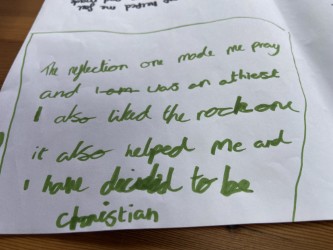 The reflection one made me pray
and I am was an athiest
I also liked the rock one
it also helped me and
I have decided to be
christian